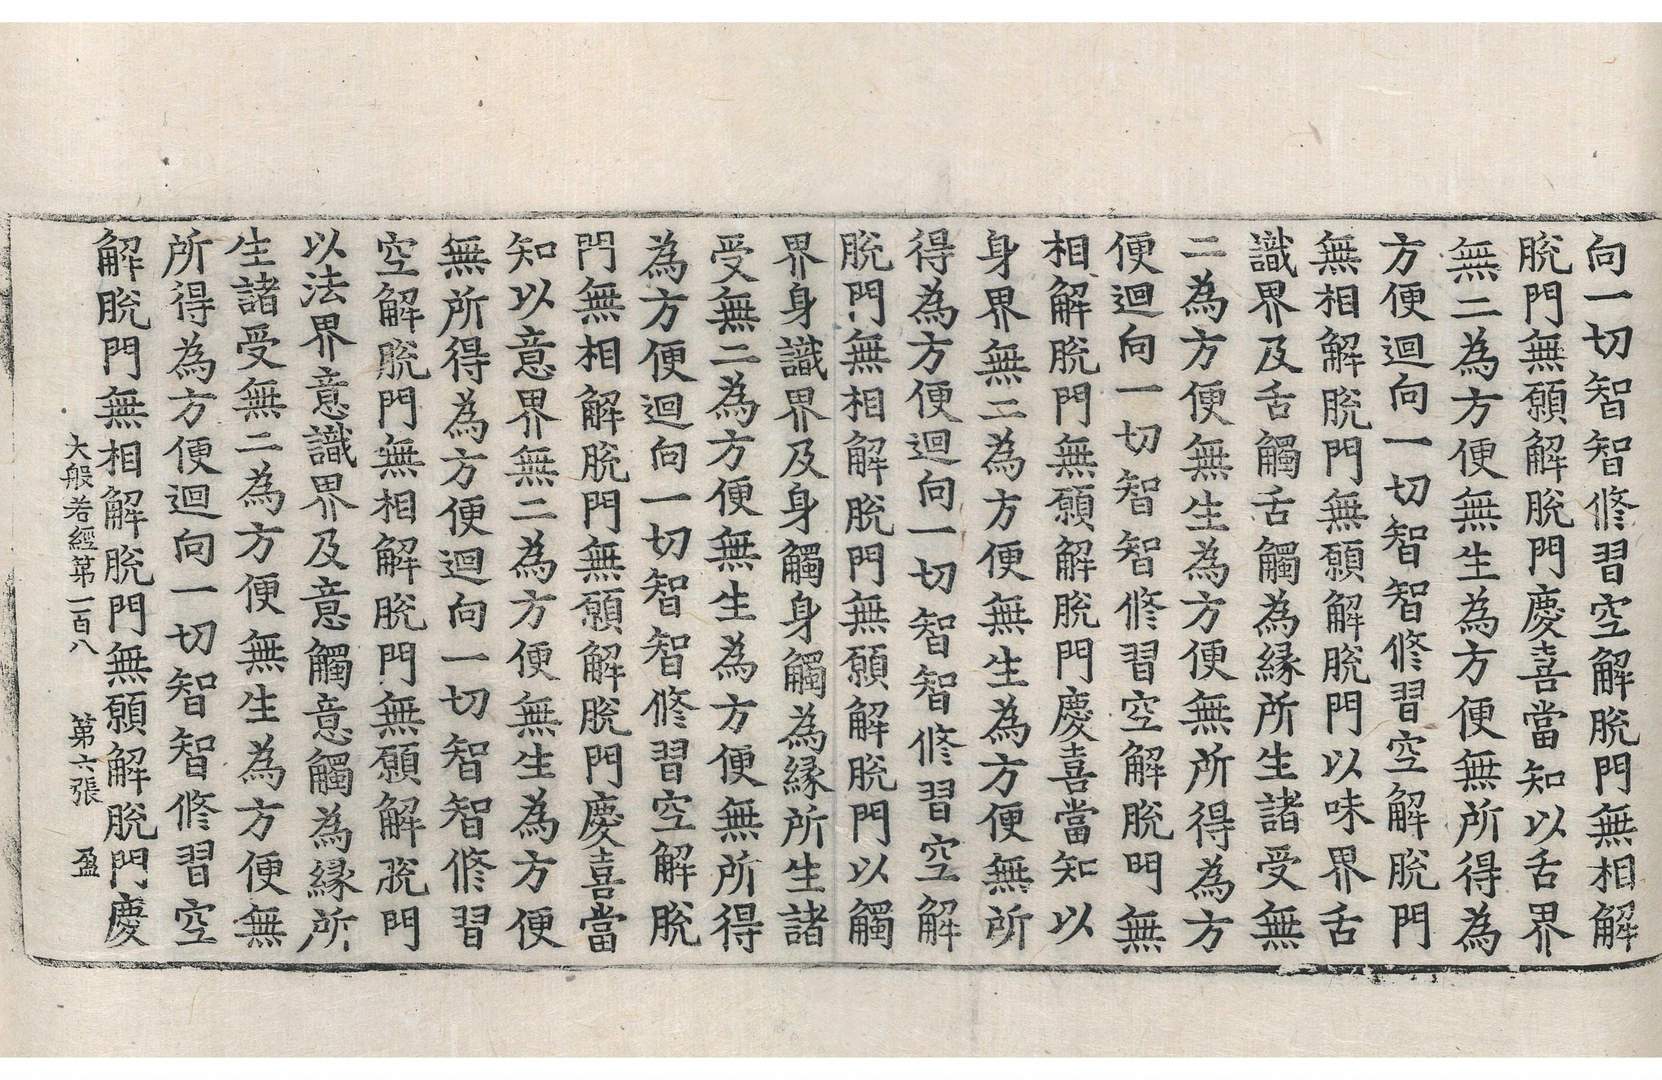 向一切智智修習空解脫門無相解
脫門無願解脫門慶喜當知以舌界
無二為方便無生為方便無所得為
方便迴向一切智智修習空解脫門
無相解脫門無願解脫門以味界舌
識界及舌觸舌觸為緣所生諸受無
二為方便無生為方便無所得為方
便迴向一切智智修習空解脫門無
相解脫門無願解脫門慶喜當知以
身界無二為方便無生為方便無所
得為方便迴向一切智智修習空解
脫門無相解脫門無願解脫門以觸
界身識界及身觸身觸為緣所生諸
受無二為方便無生為方便無所得
為方便迴向一切智智修習空解脫
門無相解脫門無願解脫門慶喜當
知以意界無二為方便無生為方便
無所得為方便迴向一切智智修習
空解脫門無相解脫門無願解脫門
以法界意識界及意觸意觸為緣所
生諸受無二為方便無生為方便無
所得為方便迴向一切智智修習空
解脫門無相解脫門無願解脫門慶
大般若經第一百八 第六張 盈